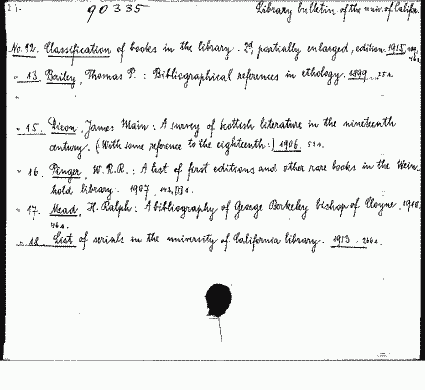 90335 Library bulletin of the univ. of Califor.
No. 12. Classification of books in the library. 2d partially enlarged, edition. 1915
" 13. Bailey, Thomas P.: Bibliographical references in ethology. 1899. 25 s.
"
" 15. Dixon, James Main: A survey of Scottish literature in the nineteenth
century. (With some reference to the eighteenth:) 1906. 52 s.
" 16. Pinger, W.R.R.: A list of first editions and other rare books in the Wein-
hold library. 1907.
" 17. Mead, H. Ralph: A bibliography of George Berkeley bishop of Cloyne. 1910.
46 s.
" 18. List of serials in the university of California library. 1913. 266 s.